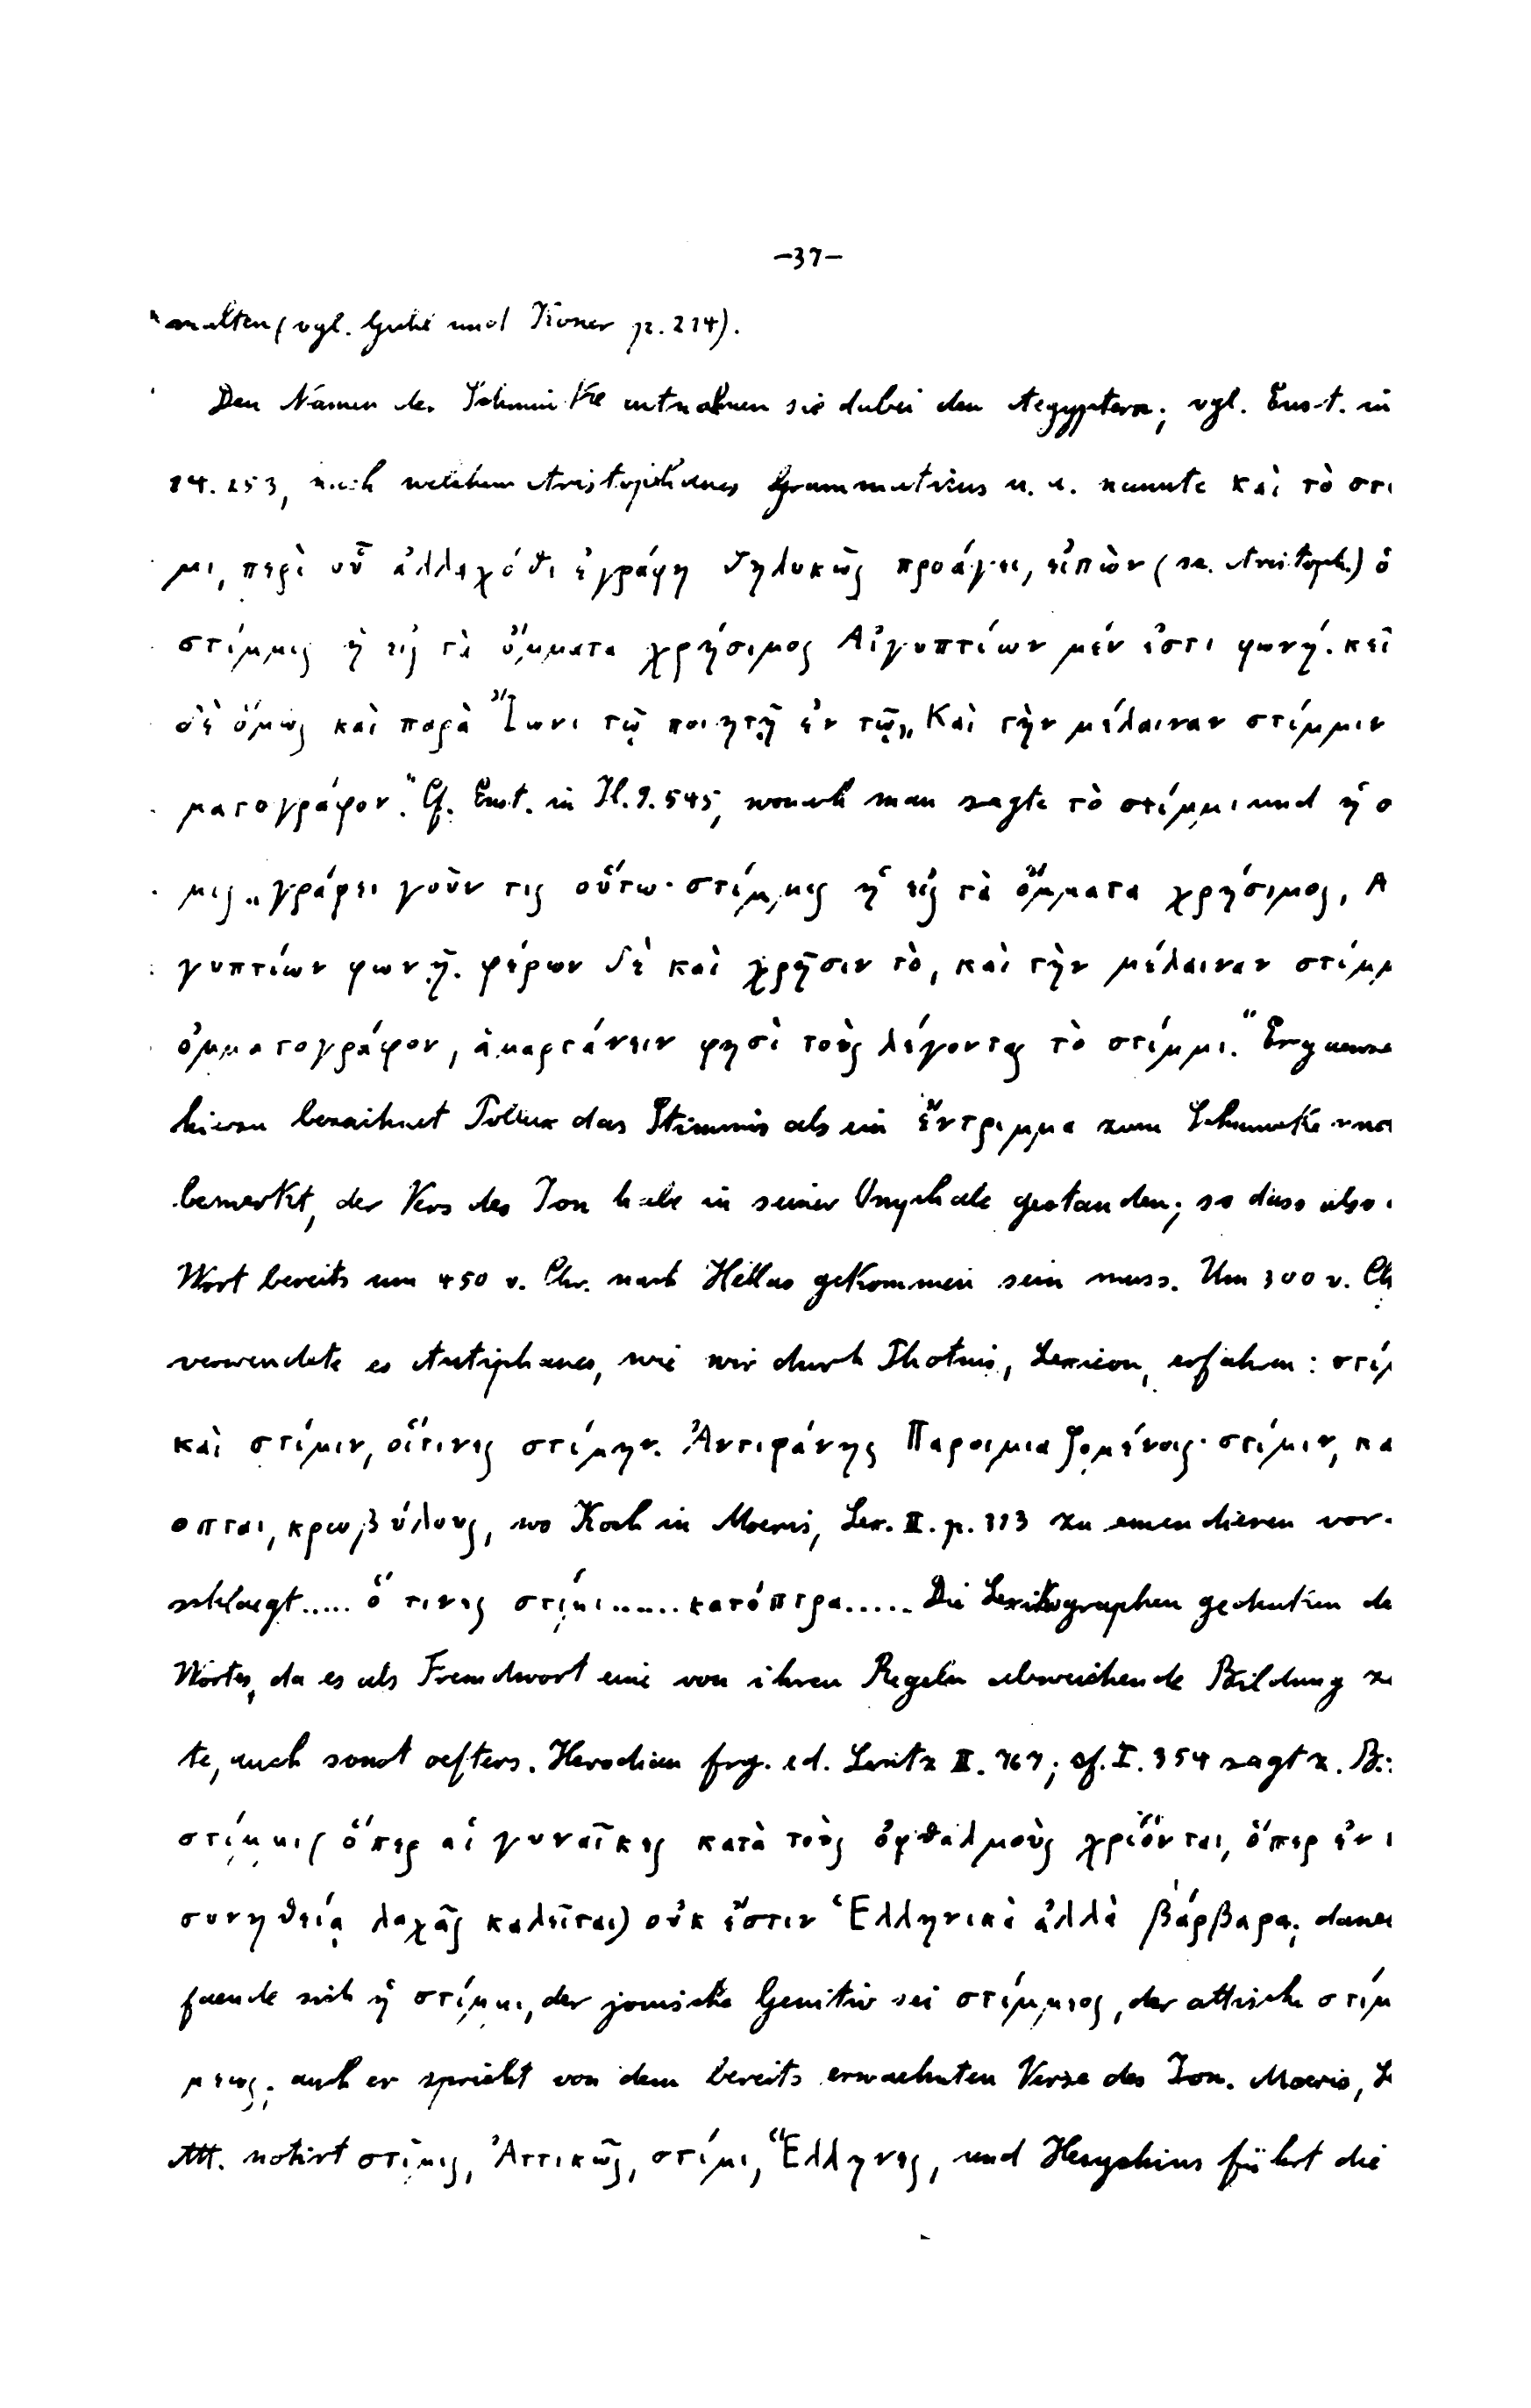 -37-
malten (vgl. Guhl und Koner p. 214).
Den Namen der Schminke entnahmen sie dabei den Aegyptern; vgl. Eust. in
14. 253, nach welchem Aristophanes Grammaticus u. a. nannte καὶ τὸ στι
μι, περὶ οὗ ἀλλαχόθι ἐγράφη θηλυκῶς προάγει, εἰπὼν (sc. Aristoph.) ὁ
στίμμις ἡ εἰς τὰ ὄμματα χρήσιμος Αἰγυπτίων μέν ἐστι φωνή. κεῖ
δὲ ὅμως καὶ παρὰ Ἴωνι τῷ ποιητῇ ἐν τῷ „Καὶ τὴν μέλαιναν στίμμιν
ματογράφον." Cf. Eust. in Il. 9. 545, wonach man sagte τὸ στίμμι und ἡ σ
μις „γράφει γοῦν τις οὕτω· στίμμις ἡ εἰς τὰ ὄμματα χρήσιμος, Α
γυπτίων φωνῇ. φέρων δὲ καὶ χρῆσιν τὸ, καὶ τὴν μέλαιναν στίμμ
ὀμματογράφον, ἁμαρτάνειν φησὶ τοὺς λέγοντας τὸ στίμμι." Ergaenze
hierzu bezeichnet Pollux das Stimmis als ein ἔντριμμα zum Schmucke und
bemerkt, der Vers des Ion habe in seiner Omphale gestanden; so dass also
Wort bereits um 450 v. Chr. nach Hellas gekommen sein muss. Um 300 v. Ch
verwendete es Antiphanes, wie wir durch Photius, Lexicon, erfahren: στίμ
καὶ στίμιν, οἵτινες στίμην. Ἀντιφάνης Παροιμιαζομένοις· στίμιν, κα
οπται, κρωβύλους, wo Koch in Moeris, Lex. II. p. 313 zu emendieren vor-
schlaegt..... ὅ τινες στίμι...... κατόπτρα..... Die Lexikographen gedenken de
Wortes, da es als Fremdwort eine von ihren Regeln abweichende Bildung z
te, auch sonst oefters. Herodian frg. ed. Lentz II. 767; cf. I. 354 sagt z. B.:
στίμμις (ὅπερ αἱ γυναῖκες κατὰ τοὺς ὀφθαλμοὺς χρίονται, ὅπερ ἐν
συνηθείᾳ λαχᾶς καλεῖται) οὐκ ἔστιν Ἑλληνικὰ ἀλλὰ βάρβαρα; dane
faende sich ἡ στίμμι, der jonische Genitiv sei στίμμιος, der attische στίμ
μεως; auch er spricht von dem bereits erwaehnten Verse des Ion. Moeris, L
Att. notirt στῖμις, Ἀττικῶς, στίμι, Ἕλληνες, und Hesychius führt die